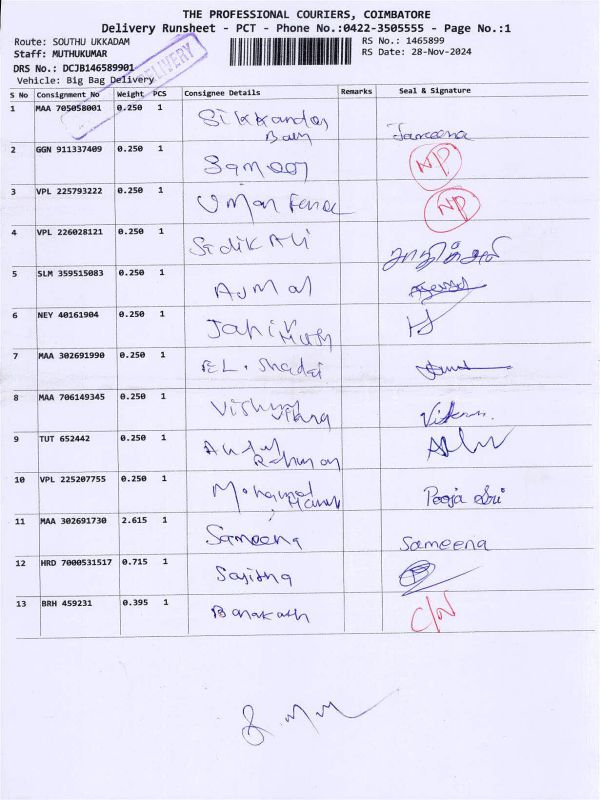 THE PROFESSIONAL COURIERS, COIMBATORE
Delivery Runsheet - PCT - Phone No.:0422-3505555 - Page No.:1
Route: SOUTHU UKKADAM
Staff: MUTHUKUMAR
DRS No.: DCJB146589901
Vehicle: Big Bag Delivery
RS No.: 1465899
RS Date: 28-Nov-2024
DELIVERY
S No Consignment No Weight PCS Consignee Details Remarks Seal & Signature
1 MAA 705058001 0.250 1 Sikkandar Jameena
2 GGN 911337409 0.250 1 Sameer NP
3 VPL 225793222 0.250 1 Umar NP
4 VPL 226028121 0.250 1 Sidik Ali
5 SLM 359515083 0.250 1 Ajmal
6 NEY 40161904 0.250 1 Jahir
7 MAA 302691990 0.250 1 EL. Shadai
8 MAA 706149345 0.250 1 Vishnu
9 TUT 652442 0.250 1 Abdul
Rahuman
10 VPL 225207755 0.250 1 Mohamed Pooja Sri
11 MAA 302691730 2.615 1 Sameena Sameena
12 HRD 7000531517 0.715 1 Sajitha
13 BRH 459231 0.395 1 Barakath C/N